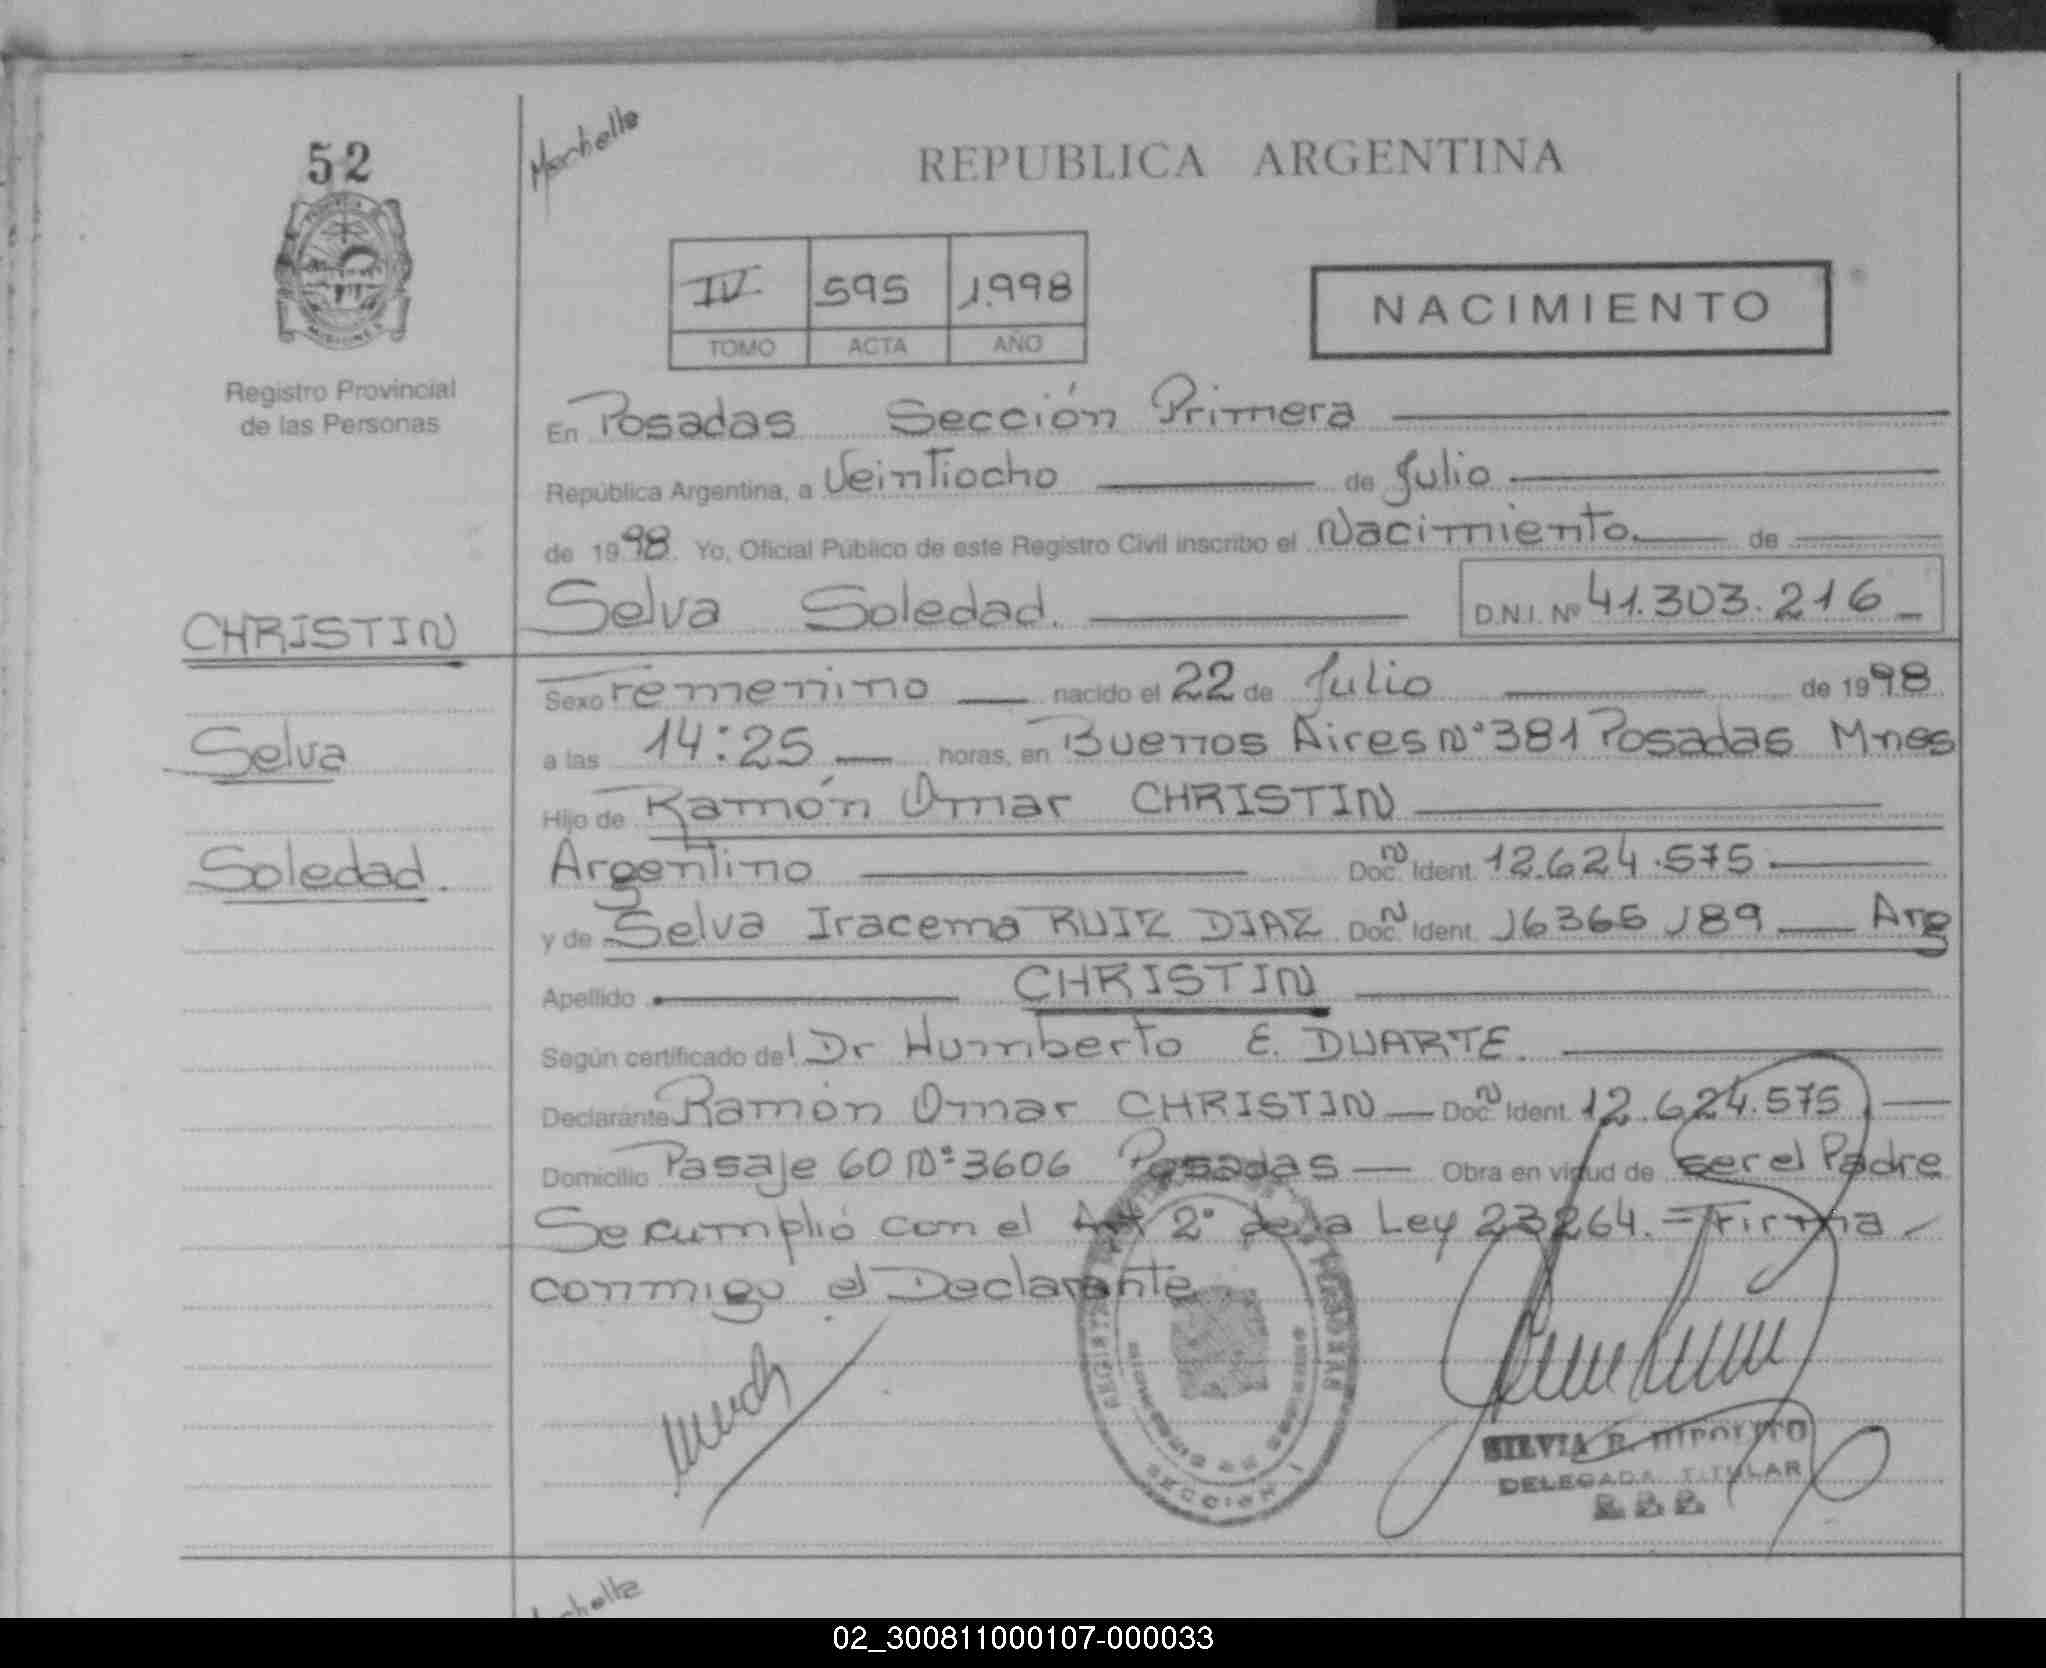 Marhelle
52
REPUBLICA ARGENTINA
IV 595 1.998
TOMO ACTA AÑO
NACIMIENTO
Registro Provincial
de las Personas
En Posadas Sección Primera
República Argentina, a Veintiocho de Julio
de 1998. Yo, Oficial Público de este Registro Civil inscribo el Nacimiento. de
Selva Soledad. D.N.I. Nº 41.303.216
CHRISTIN
Selva
Soledad.
Sexo Femenino nacido el 22 de Julio de 1998
a las 14:25 horas, en Buenos Aires Nº 381 Posadas Mnes
Hijo de Ramón Omar CHRISTIN
Argentino Doc. N Ident. 12.624.575
y de Selva Iracema RUIZ DIAZ Doc. N Ident. 16365189 Arg
Apellido CHRISTIN
Según certificado del Dr Humberto E. DUARTE.
Declarante Ramón Omar CHRISTIN Doc. N Ident. 12.624.575
Domicilio Pasaje 60 Nº 3606 Posadas Obra en virtud de ser el Padre
Se cumplió con el Art 2º de la Ley 23264.= Firma
conmigo el Declarante
SECCION I
SILVIA R. HIPOLITO
DELEGADA TITULAR
02_300811000107-000033